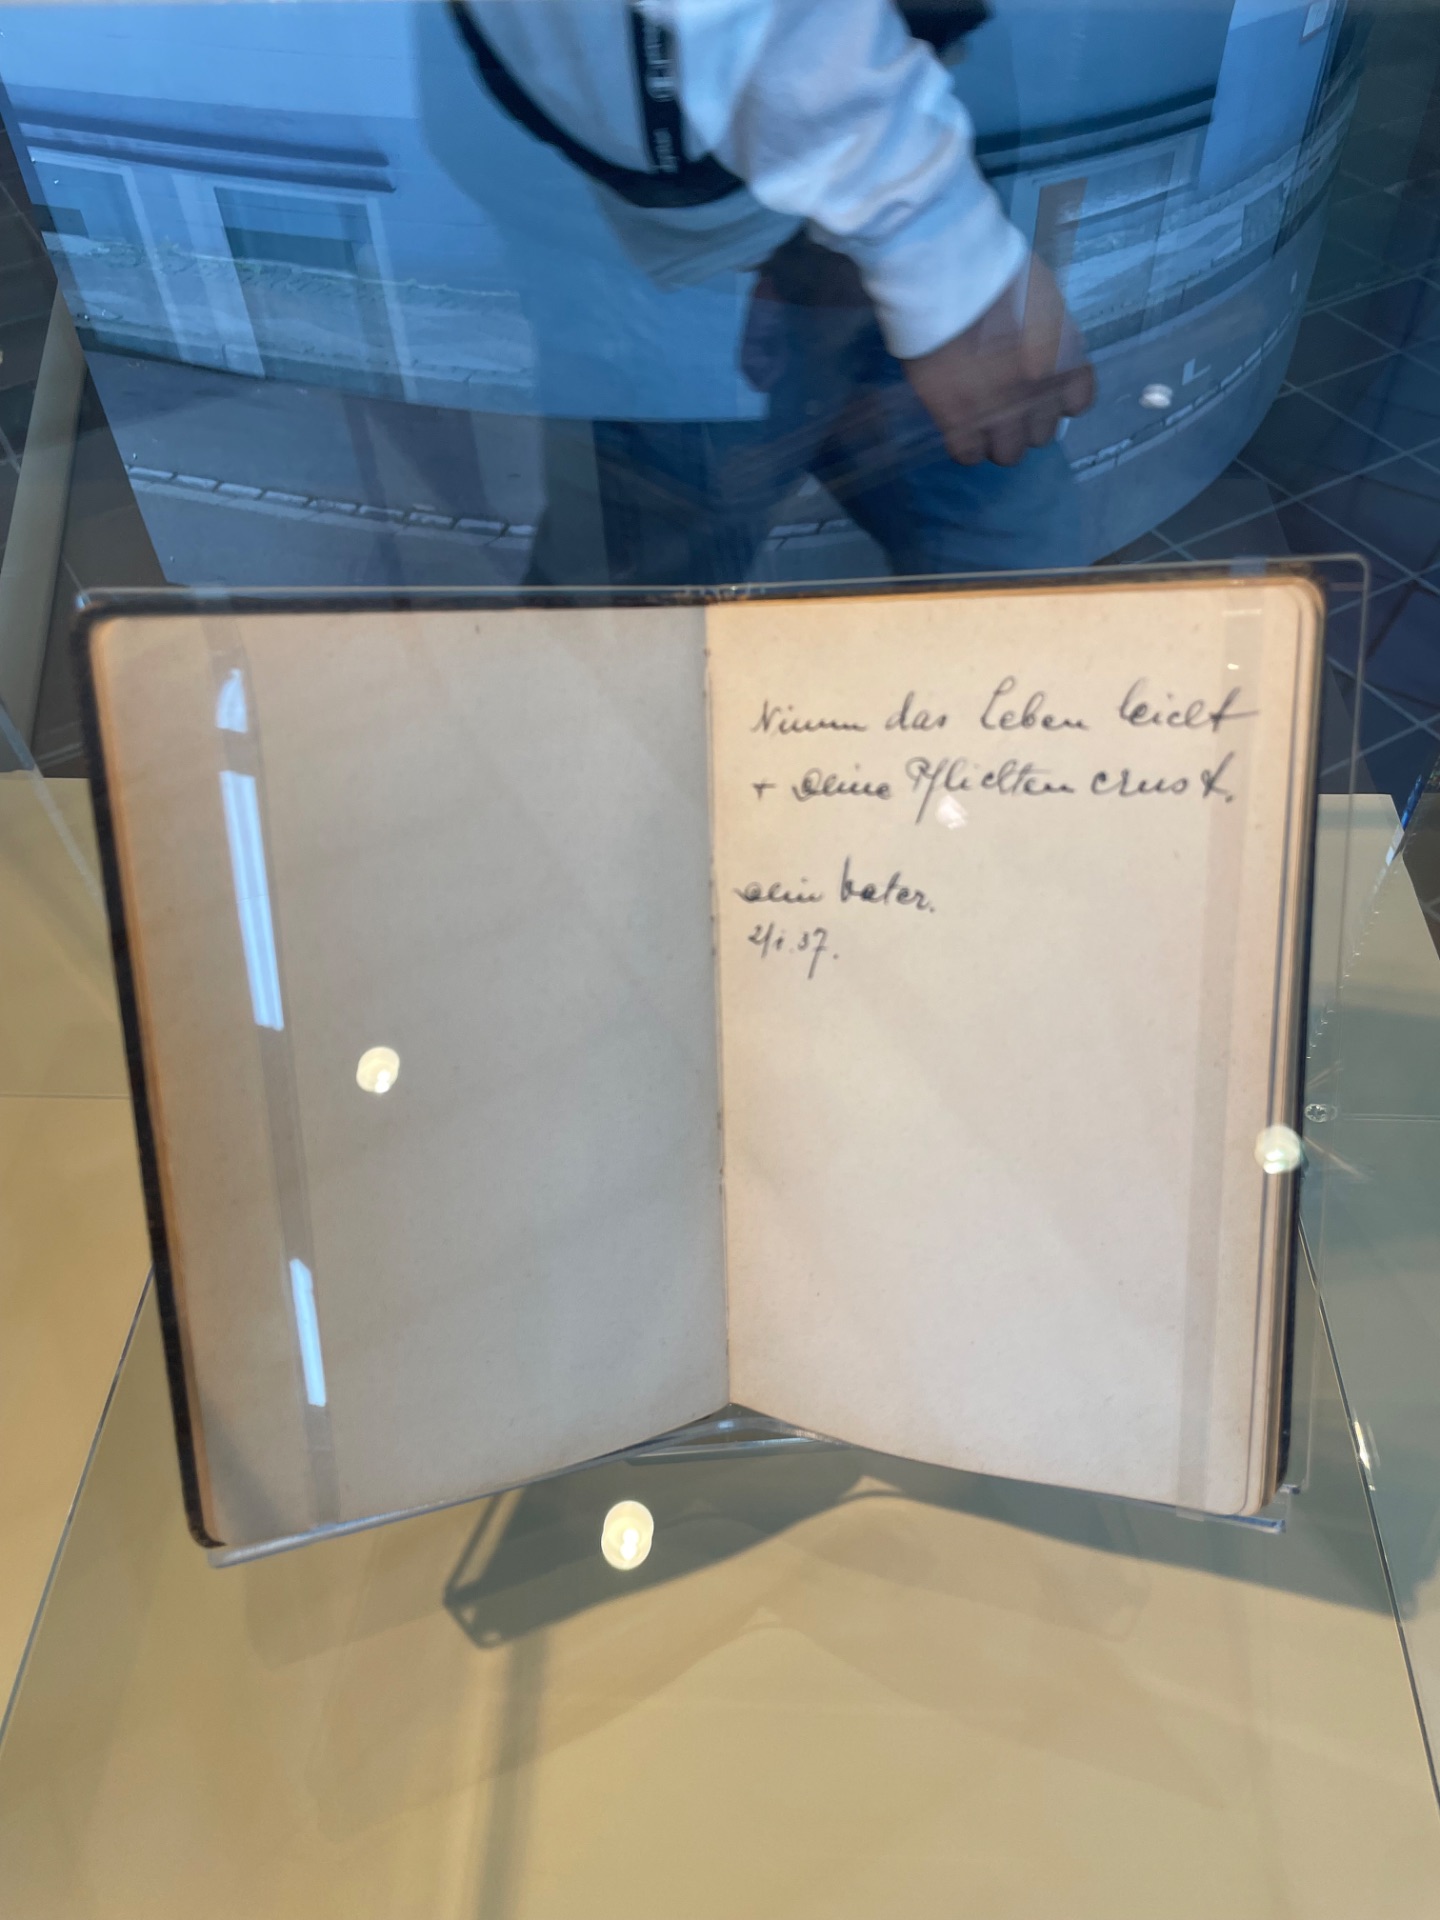 Nimm das Leben leicht
+ Deine Pflichten ernst.
Dein Vater.
2/1.37.